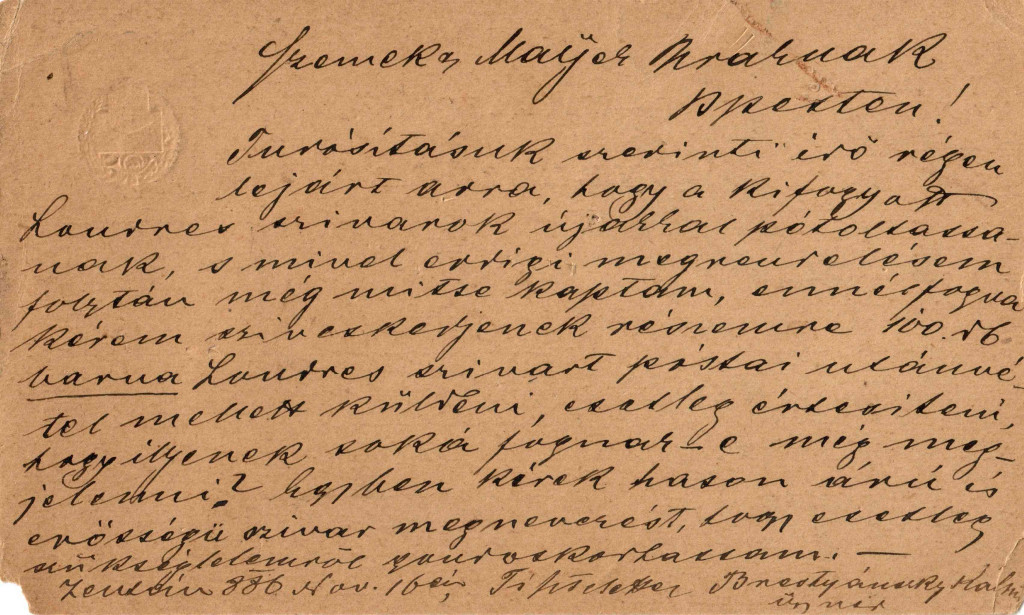 Mayer Uraknak
Bpesten!
Tudósításuk szerinti idő régen
lejárt arra, hogy a kifogyott
Londres szivarok újakkal pótoltassa-
nak, s mivel eddigi megrendelésem
folytán még mitse kaptam, ennélfogva
kérem sziveskedjenek részemre 100. db
barna Londres szivart póstai utánvé-
tel mellett küldeni, esetleg értesiteni,
hogy illyenek soká fognak-e még meg-
jelenni? Egyben kérek hason árú és
erősségü szivar megnevezést, hogy esetleg
szükségletemről gondoskorhassam. —
Zentán 886 Nov. 16án Tisztelettel